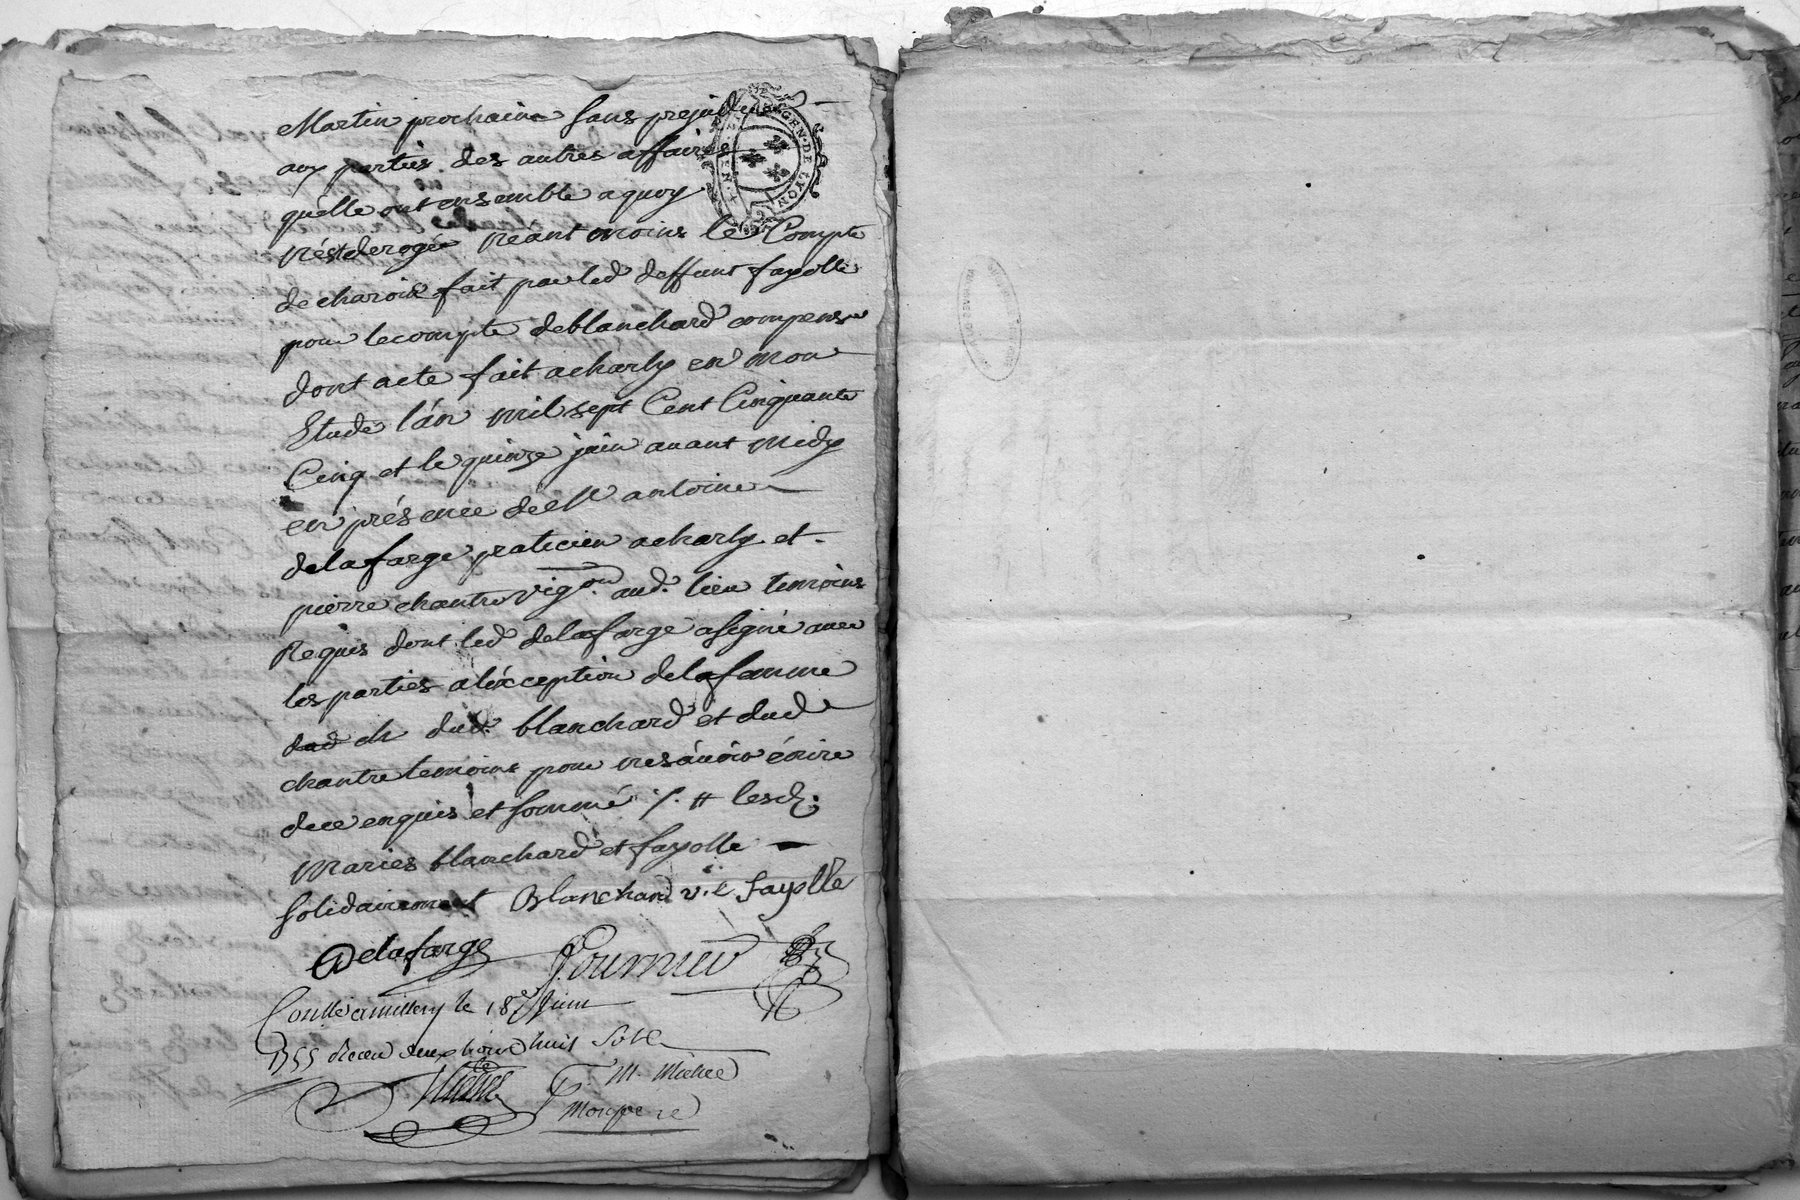 Martin prochaine sans prejudice
aux parties des autres affaires
qu'elle ont ensemble a quoy
n'est derogée neant moins le Compte
de charois fait par led deffunt fayolle
pour le compte de blanchard compensé
dont acte fait a charly en mon
Etude l'an mil sept Cent Cinquante
Cinq et le quinze juin avant midy
en présence de Sr antoine
delafarge praticien a charly et
pierre chantre vigon aud. lieu temoins
Requis dont led delafarge a signé avec
les parties a l'éxception de la famme
dud. blanchard et dud
chantre temoins pour ne sávoir écrire
de ce enquis et sommé ./. # lesd.
Maries blanchard et fayolle
solidairement Blanchard v.e fayolle
Delafarge Fournier
Conllé a millery le 18e Juin
1755 Reçeu deux livre huit sols
M. Michel
GEN. DE LYON